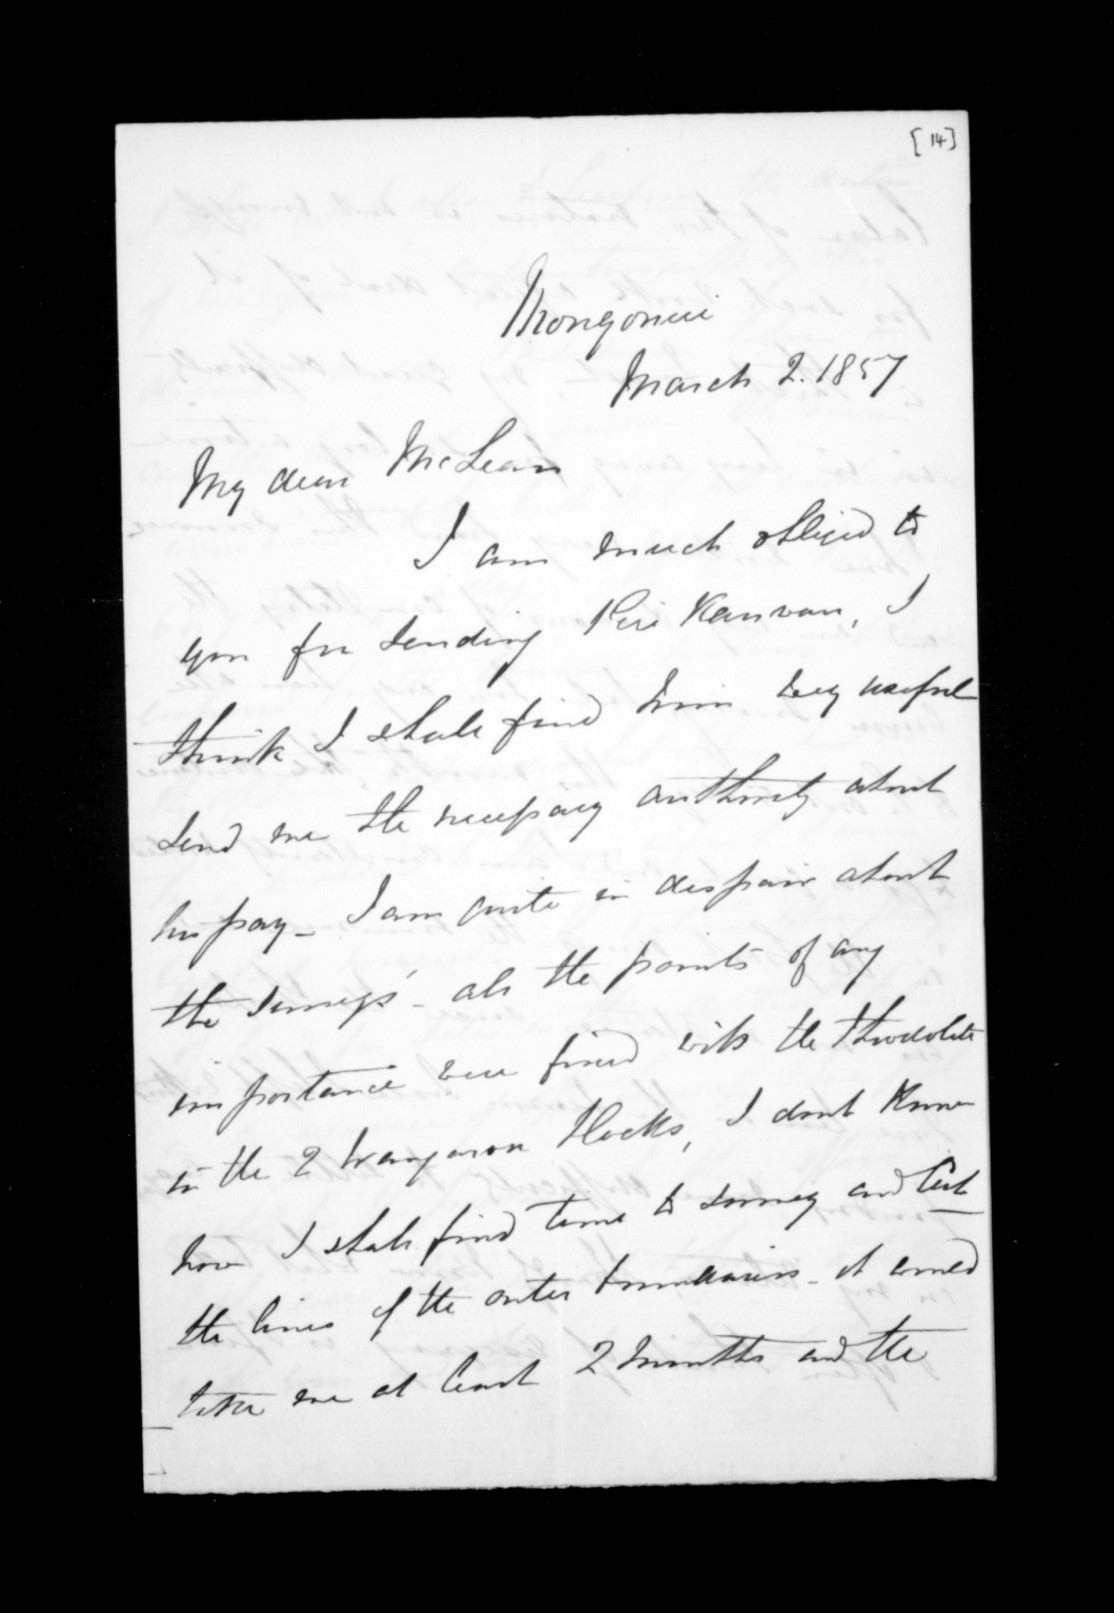 [14]
Mongonui
March 2. 1857
My dear McLean
I am much obliged to
you for sending Piri Kawau, I
think I shall find him very useful
send me the necessary authority about
his pay _ I am quite in despair about
the surveys - all the points of any
importance were fixed with the theodolite
in the 2 Wangaroa Blocks, I dont know
how I shall find time to survey and Cut
the lines of the outer boundaries - it would
take me at least 2 months and the